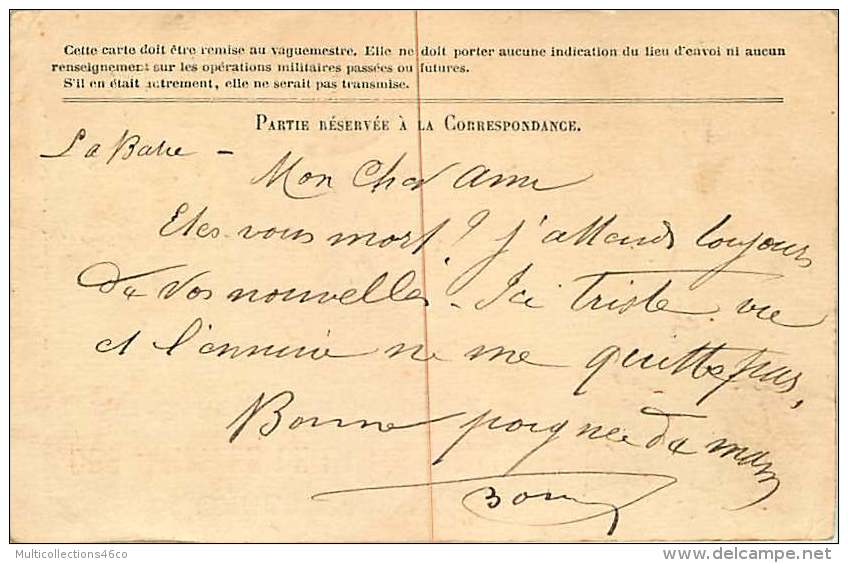 Cette carte doit être remise au vaguemestre. Elle ne doit porter aucune indication du lieu d'envoi ni aucun
renseignement sur les opérations militaires passées ou futures.
S'il en était autrement, elle ne serait pas transmise.
PARTIE RÉSERVÉE À LA CORRESPONDANCE.
La –
Mon Cher Ami
Etes-vous mort ? J'attends toujours
de vos nouvelles – Ici triste vie
et l'ennuie ne me quitte pas,
Bonne poignée de main
Multicollections46co
delcampe.net